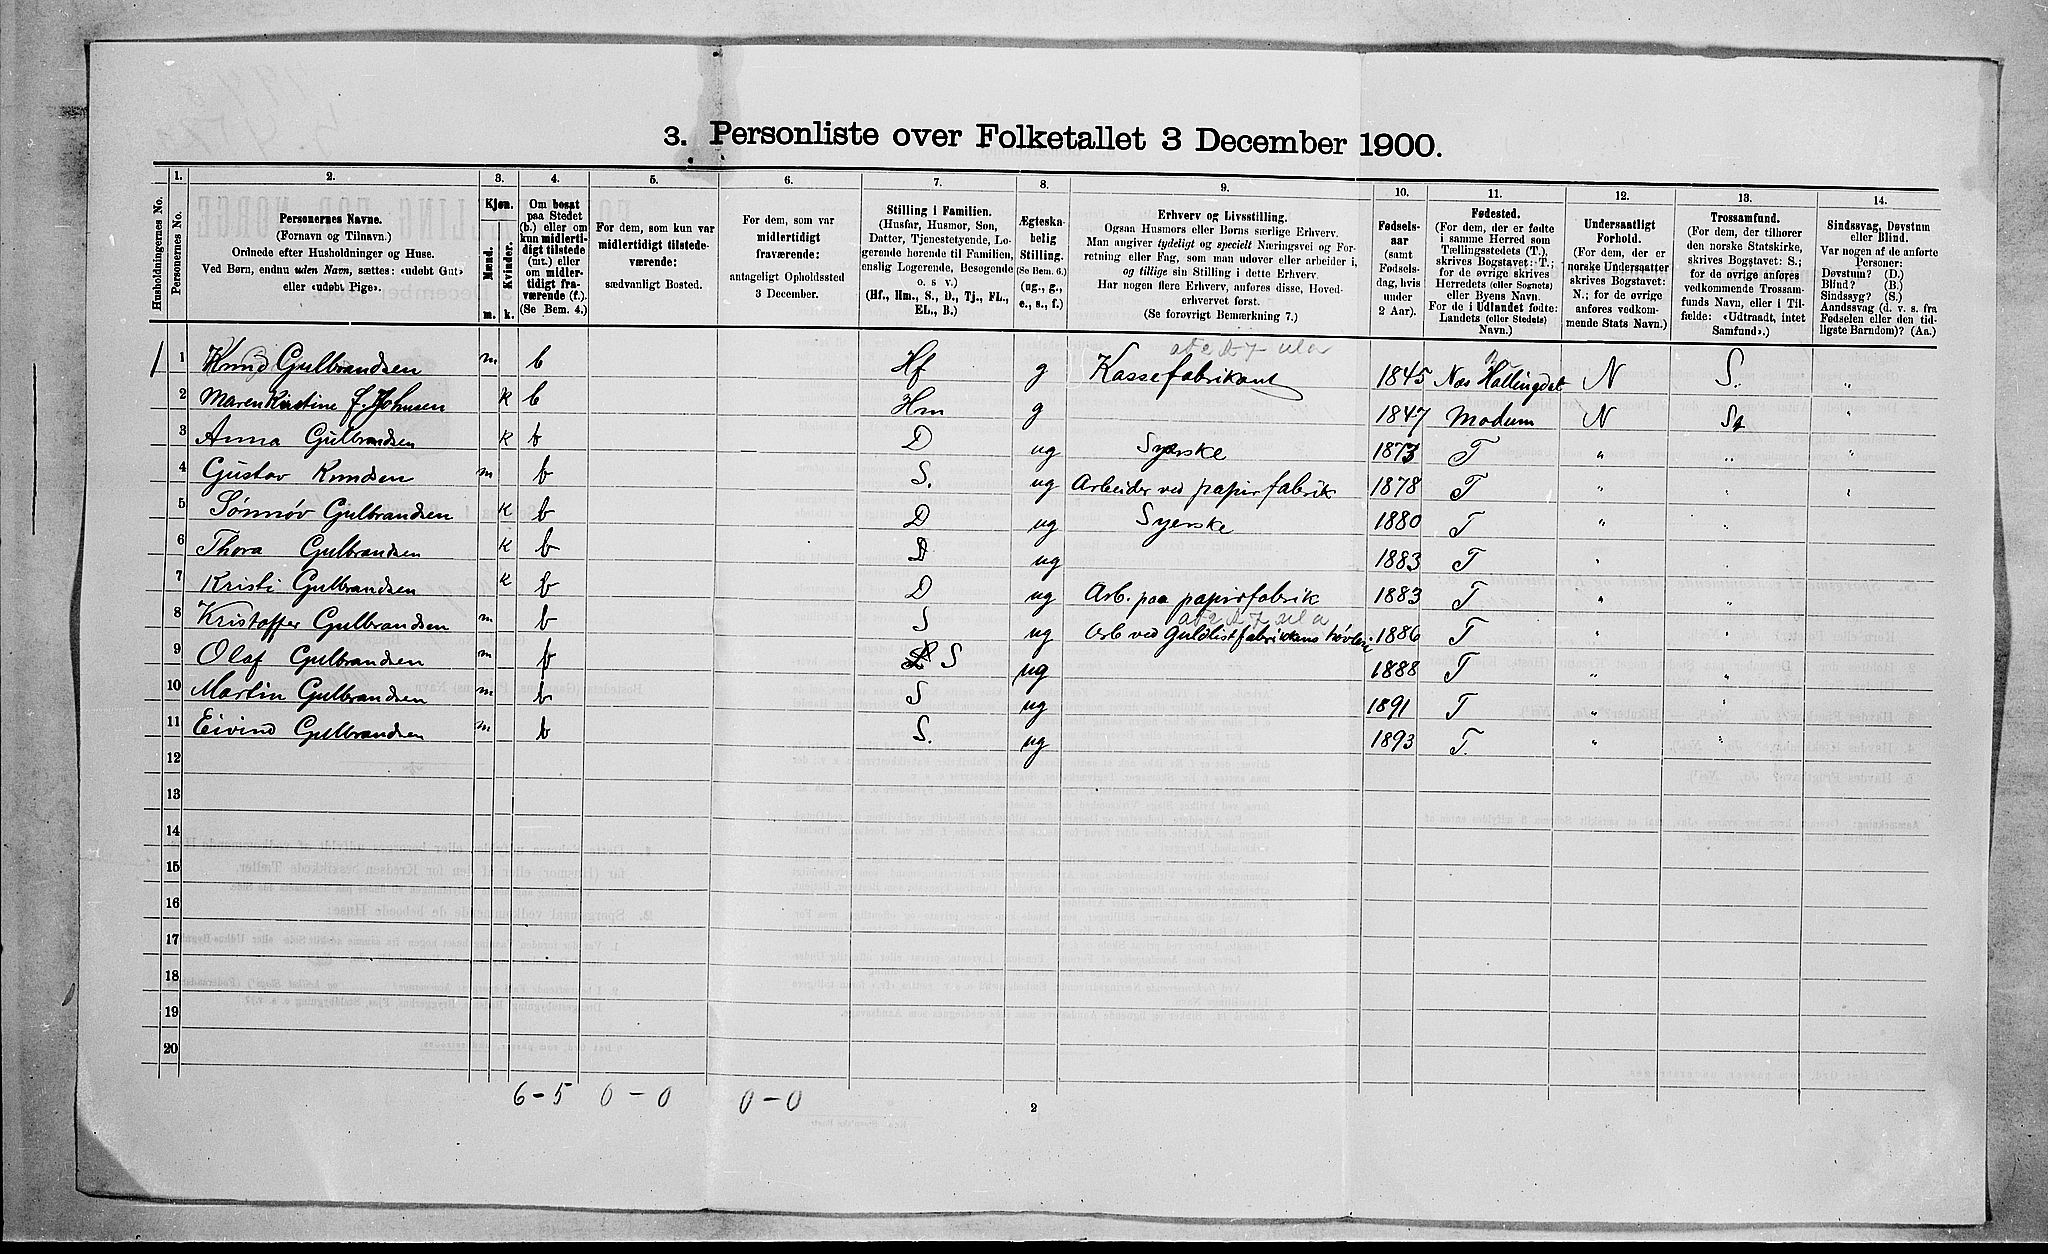 3. Personliste over Folketallet 3 December 1900.
Husholdningernes No.
1.
Personernes No.
2.
Personernes Navne.
(Fornavn og Tilnavn.)
Ordnede efter Husholdninger og Huse.
Ved Børn, endnu uden Navn, sættes: «udøbt Gut»
eller «udøbt Pige».
3.
Kjøn.
Mænd.
Kvinder.
m. k.
4.
Om bosat
paa Stedet
(b.) eller om
kun midlerti-
digt tilstede
(mt.) eller
om midler-
tidigt fra-
værende (f.).
(Se Bem. 4.)
5.
For dem, som kun var
midlertidigt tilstede-
værende:
sædvanligt Bosted.
6.
For dem, som var
midlertidigt
fraværende:
antageligt Opholdssted
3 December.
7.
Stilling i Familien.
(Husfar, Husmor, Søn,
Datter, Tjenestetyende, Lo-
gerende hørende til Familien,
enslig Logerende, Besøgende
o. s v.)
(Hf., Hm., S., D., Tj., FL.,
EL., B.)
8.
Ægteska-
belig
Stilling.
(Se Bem. 6.)
(ug., g.,
e., s., f.)
9.
Erhverv og Livsstilling.
Ogsaa Husmors eller Børns særlige Erhverv.
Man angiver tydeligt og specielt Næringsvei og For-
retning eller Fag, som man udøver eller arbeider i,
og tillige sin Stilling i dette Erhverv.
Har nogen flere Erhverv, anføres disse, Hoved-
erhvervet først.
(Se forøvrigt Bemærkning 7.)
10.
Fødsels-
aar
(samt
Fødsels-
dag, hvis
under
2 Aar).
11.
Fødested.
(For dem, der er fødte
i samme Herred som
Tællingsstedets (T.),
skrives Bogstavet: T.;
for de øvrige skrives
Herredets (eller Sognets)
eller Byens Navn.
For de i Udlandet fødte:
Landets (eller Stedets)
Navn.)
12.
Undersaatligt
Forhold.
(For dem, der er
norske Undersaatter
skrives Bogstavet:
N.; for de øvrige
anføres vedkom-
mende Stats Navn.)
13.
Trossamfund.
(For dem, der tilhører
den norske Statskirke,
skrives Bogstavet: S.;
for de øvrige anføres
vedkommende Trossam-
funds Navn, eller i Til-
fælde: «Udtraadt, intet
Samfund».)
14.
Sindssvag, Døvstum
eller Blind.
Var nogen af de anførte
Personer:
Døvstum? (D.)
Blind? (B.)
Sindssyg? (S.)
Aandssvag (d. v. s. fra
Fødselen eller den tid-
ligste Barndom)? (Aa.)
1 1 Knud Gulbrandsen m b Hf g Kassefabrikant 1845 Næs Hallingdal N S. "
2 Maren Kirstine f. Johnsen k b Hm g 1847 Modum N S. "
3 Anna Gulbrandsen k b D ug Syerske 1873 T " " "
4 Gustav Knudsen m b S. ug Arbeider ved papirfabrik 1878 T " " "
5 Sønnøv Gulbrandsen k b D ug Syerske 1880 T " "
6 Thora Gulbrandsen k b D ug 1883 T " "
7 Kristi Gulbrandsen k b D ug Arb. paa papirfabrik 1883 T " "
8 Kristoffer Gulbrandsen m b S ug Arb ved Guldlistfabrikkens høvleri 1886 T " "
9 Olaf Gulbrandsen m b S ug 1888 T " "
10 Martin Gulbrandsen m b S ug 1891 T " "
11 Eivind Gulbrandsen m b S. ug 1893 T. " "
12
13
14
15
16
17
18
19
20
6 - 5 0 - 0 0 - 0
2